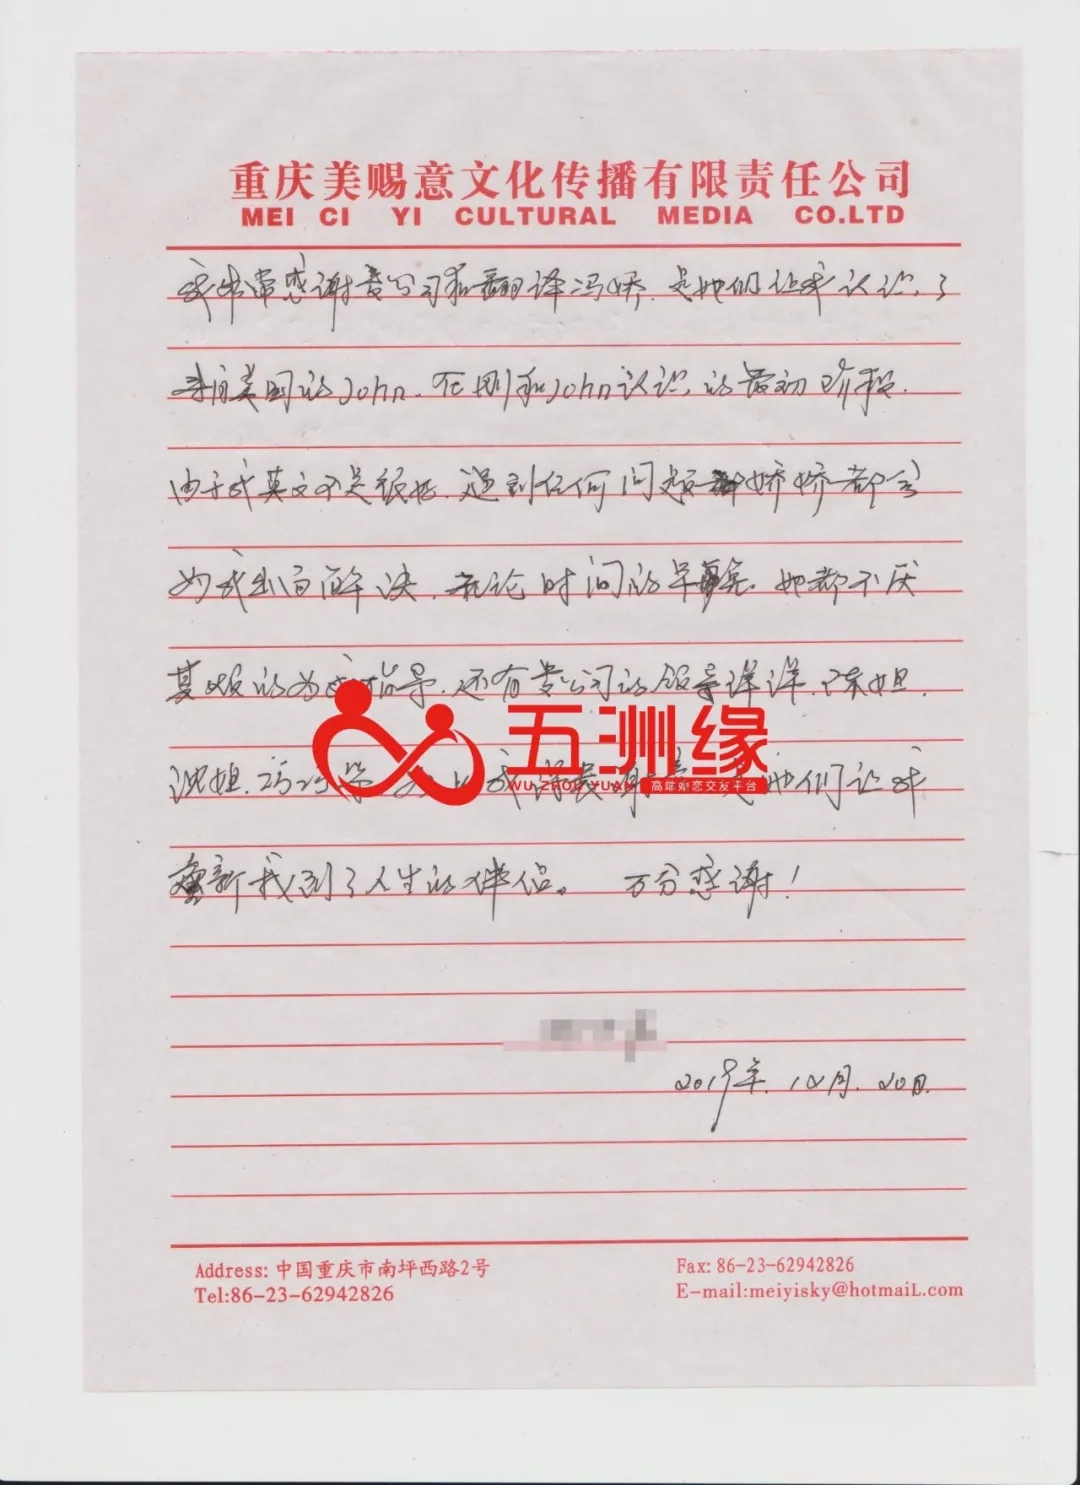 重庆美赐意文化传播有限责任公司
MEI CI YI CULTURAL MEDIA CO.LTD
我非常感谢贵公司和翻译冯娇.是她们让我认识了
来自美国的John.在刚和John认识的最初阶段.
由于我英文不是很好.遇到任何问题娇娇都会
为我出面解决.无论时间的早晚.她都不厌
其烦的为我指导.还有贵公司的领导洋洋.陈姐.
沈姐.冯冯等 我 是她们让我
重新找到了人生的伴侣。 万分感谢!
五洲缘
WU ZHOU YUAN 高端婚恋交友平台
2019年.12月.20日.
Address: 中国重庆市南坪西路2号
Fax: 86-23-62942826
Tel:86-23-62942826
E-mail:meiyisky@hotmaiL.com